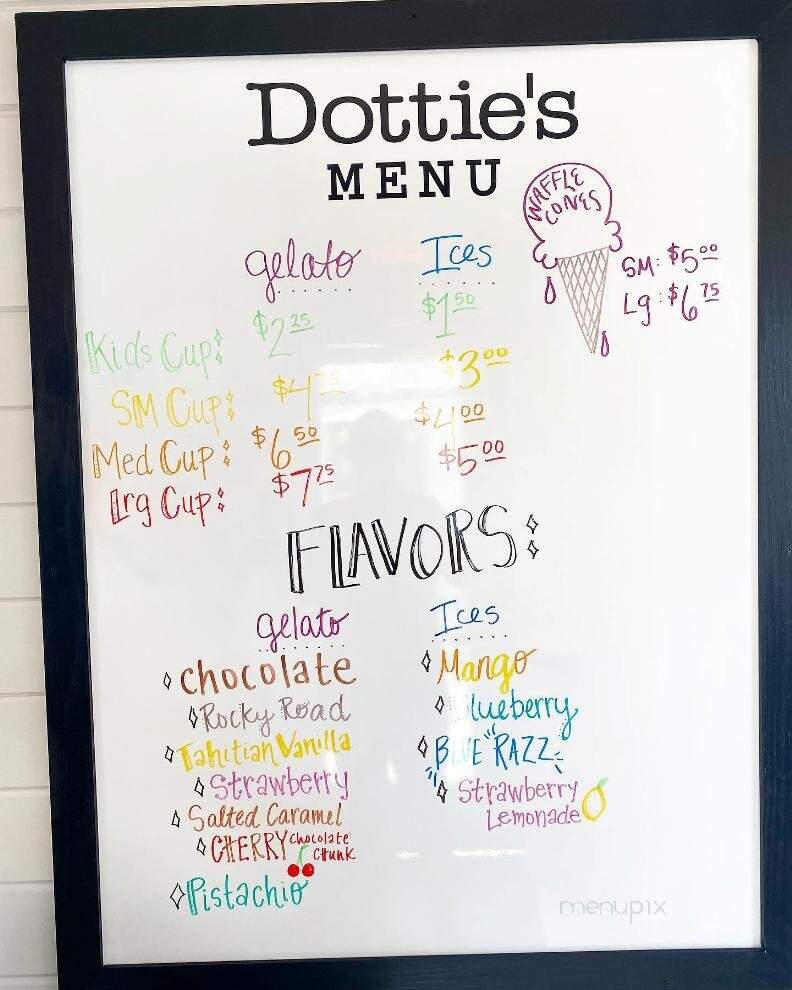 Dottie's
MENU
WAFFLE
CONES
SM: $5.00
Lg: $6.75
gelato Ices
Kids Cup: $2.25 $1.50
SM Cup: $4.75 $3.00
Med Cup: $6.50 $4.00
Lrg Cup: $7.75 $5.00
FLAVORS:
gelato Ices
chocolate
Rocky Road
Tahitian Vanilla
Strawberry
Salted Caramel
CHERRY chocolate
chunk
Pistachio
Mango
Blueberry
BLUE "RAZZ
Strawberry
Lemonade
menupix